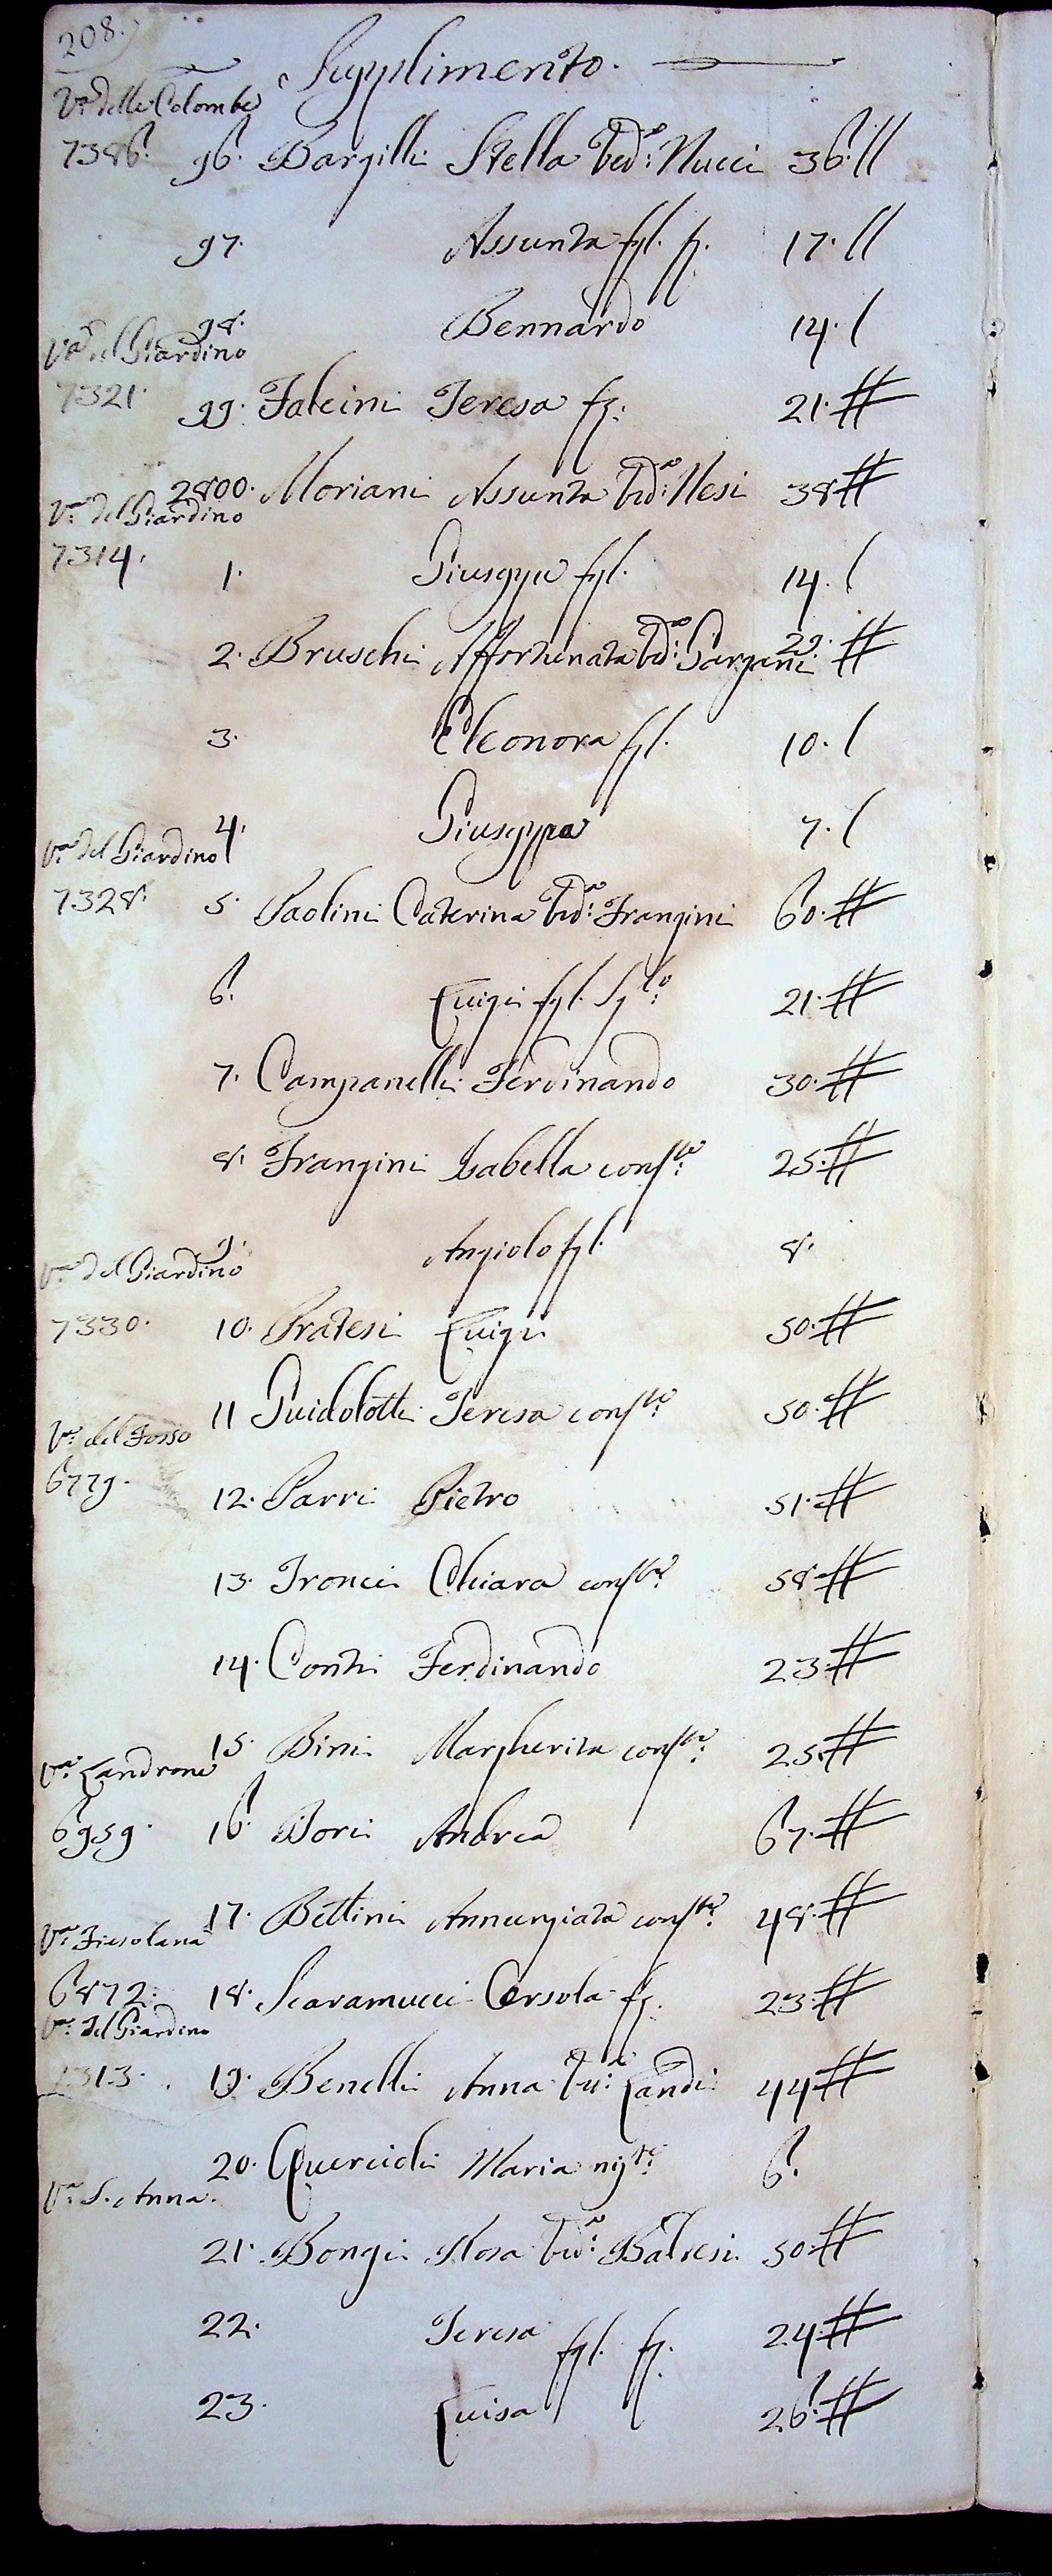 208.
Supplimento.
V.a delle Colombe
7386. 96. Bargilli Stella ved.a Nucci 36. //
97. Assunta figl. f. 17. //
98. Bennardo 14. /
V.a del Giardino
7321. 99. Falcini Teresa f. 21. #
2800. Moriani Assunta ved.a Nesi 38 #
V.a del Giardino
7314. 1. Giuseppe figl. 14. /
2. Bruschi Affortunata ved.a Gargani 29. #
3. Eleonora figl. 10. /
4. Giuseppa 7. /
V.a del Giardino
7328. 5. Paolini Caterina ved.a Frangini 60. #
6. Luigi figl. 21. #
7. Campanelli Ferdinando 30. #
8. Frangini Isabella cons.te 25. #
9. Angiolo figl. 8.
V.a del Giardino
7330. 10. Pratesi Luigi 50. #
11 Guidolotti Teresa cons.te 50. #
V.a del Fosso
6779. 12. Parri Pietro 51. #
13. Tronci Chiara cons.te 58. #
14. Conti Ferdinando 23. #
15. Bini Margherita cons.te 25. #
V.a Landrone
6959. 16. Bori Andrea 67. #
17. Bettini Annunziata cons.te 48. #
V.a Fiesolana
6872. 18. Scaramucci Orsola f. 23. #
V.a del Giardino
7313. 19. Benelli Anna ved.a Landi 44 #
20. Quercioli Maria nip.te 6.
V.a S. Anna.
21. Bongi Rosa ved.a Batresi 50. #
22. Teresa figl. f. 24. #
23. Luisa 26. #